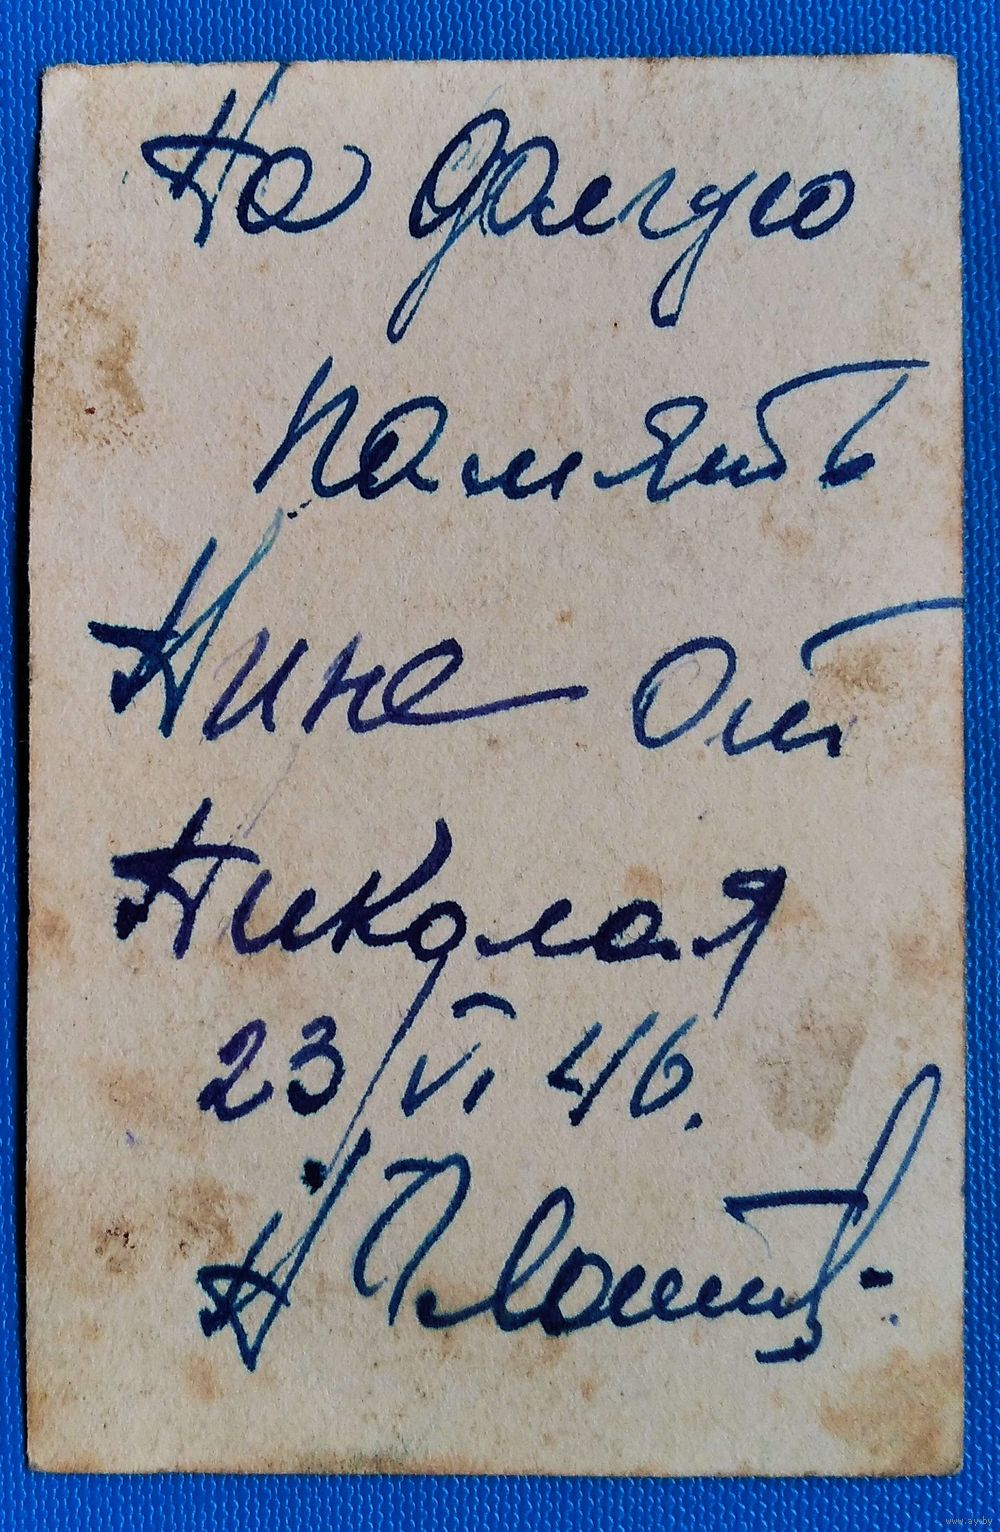 На долгую
память
Нине от
Николая
23 VI 46.
Н
www.ay.by